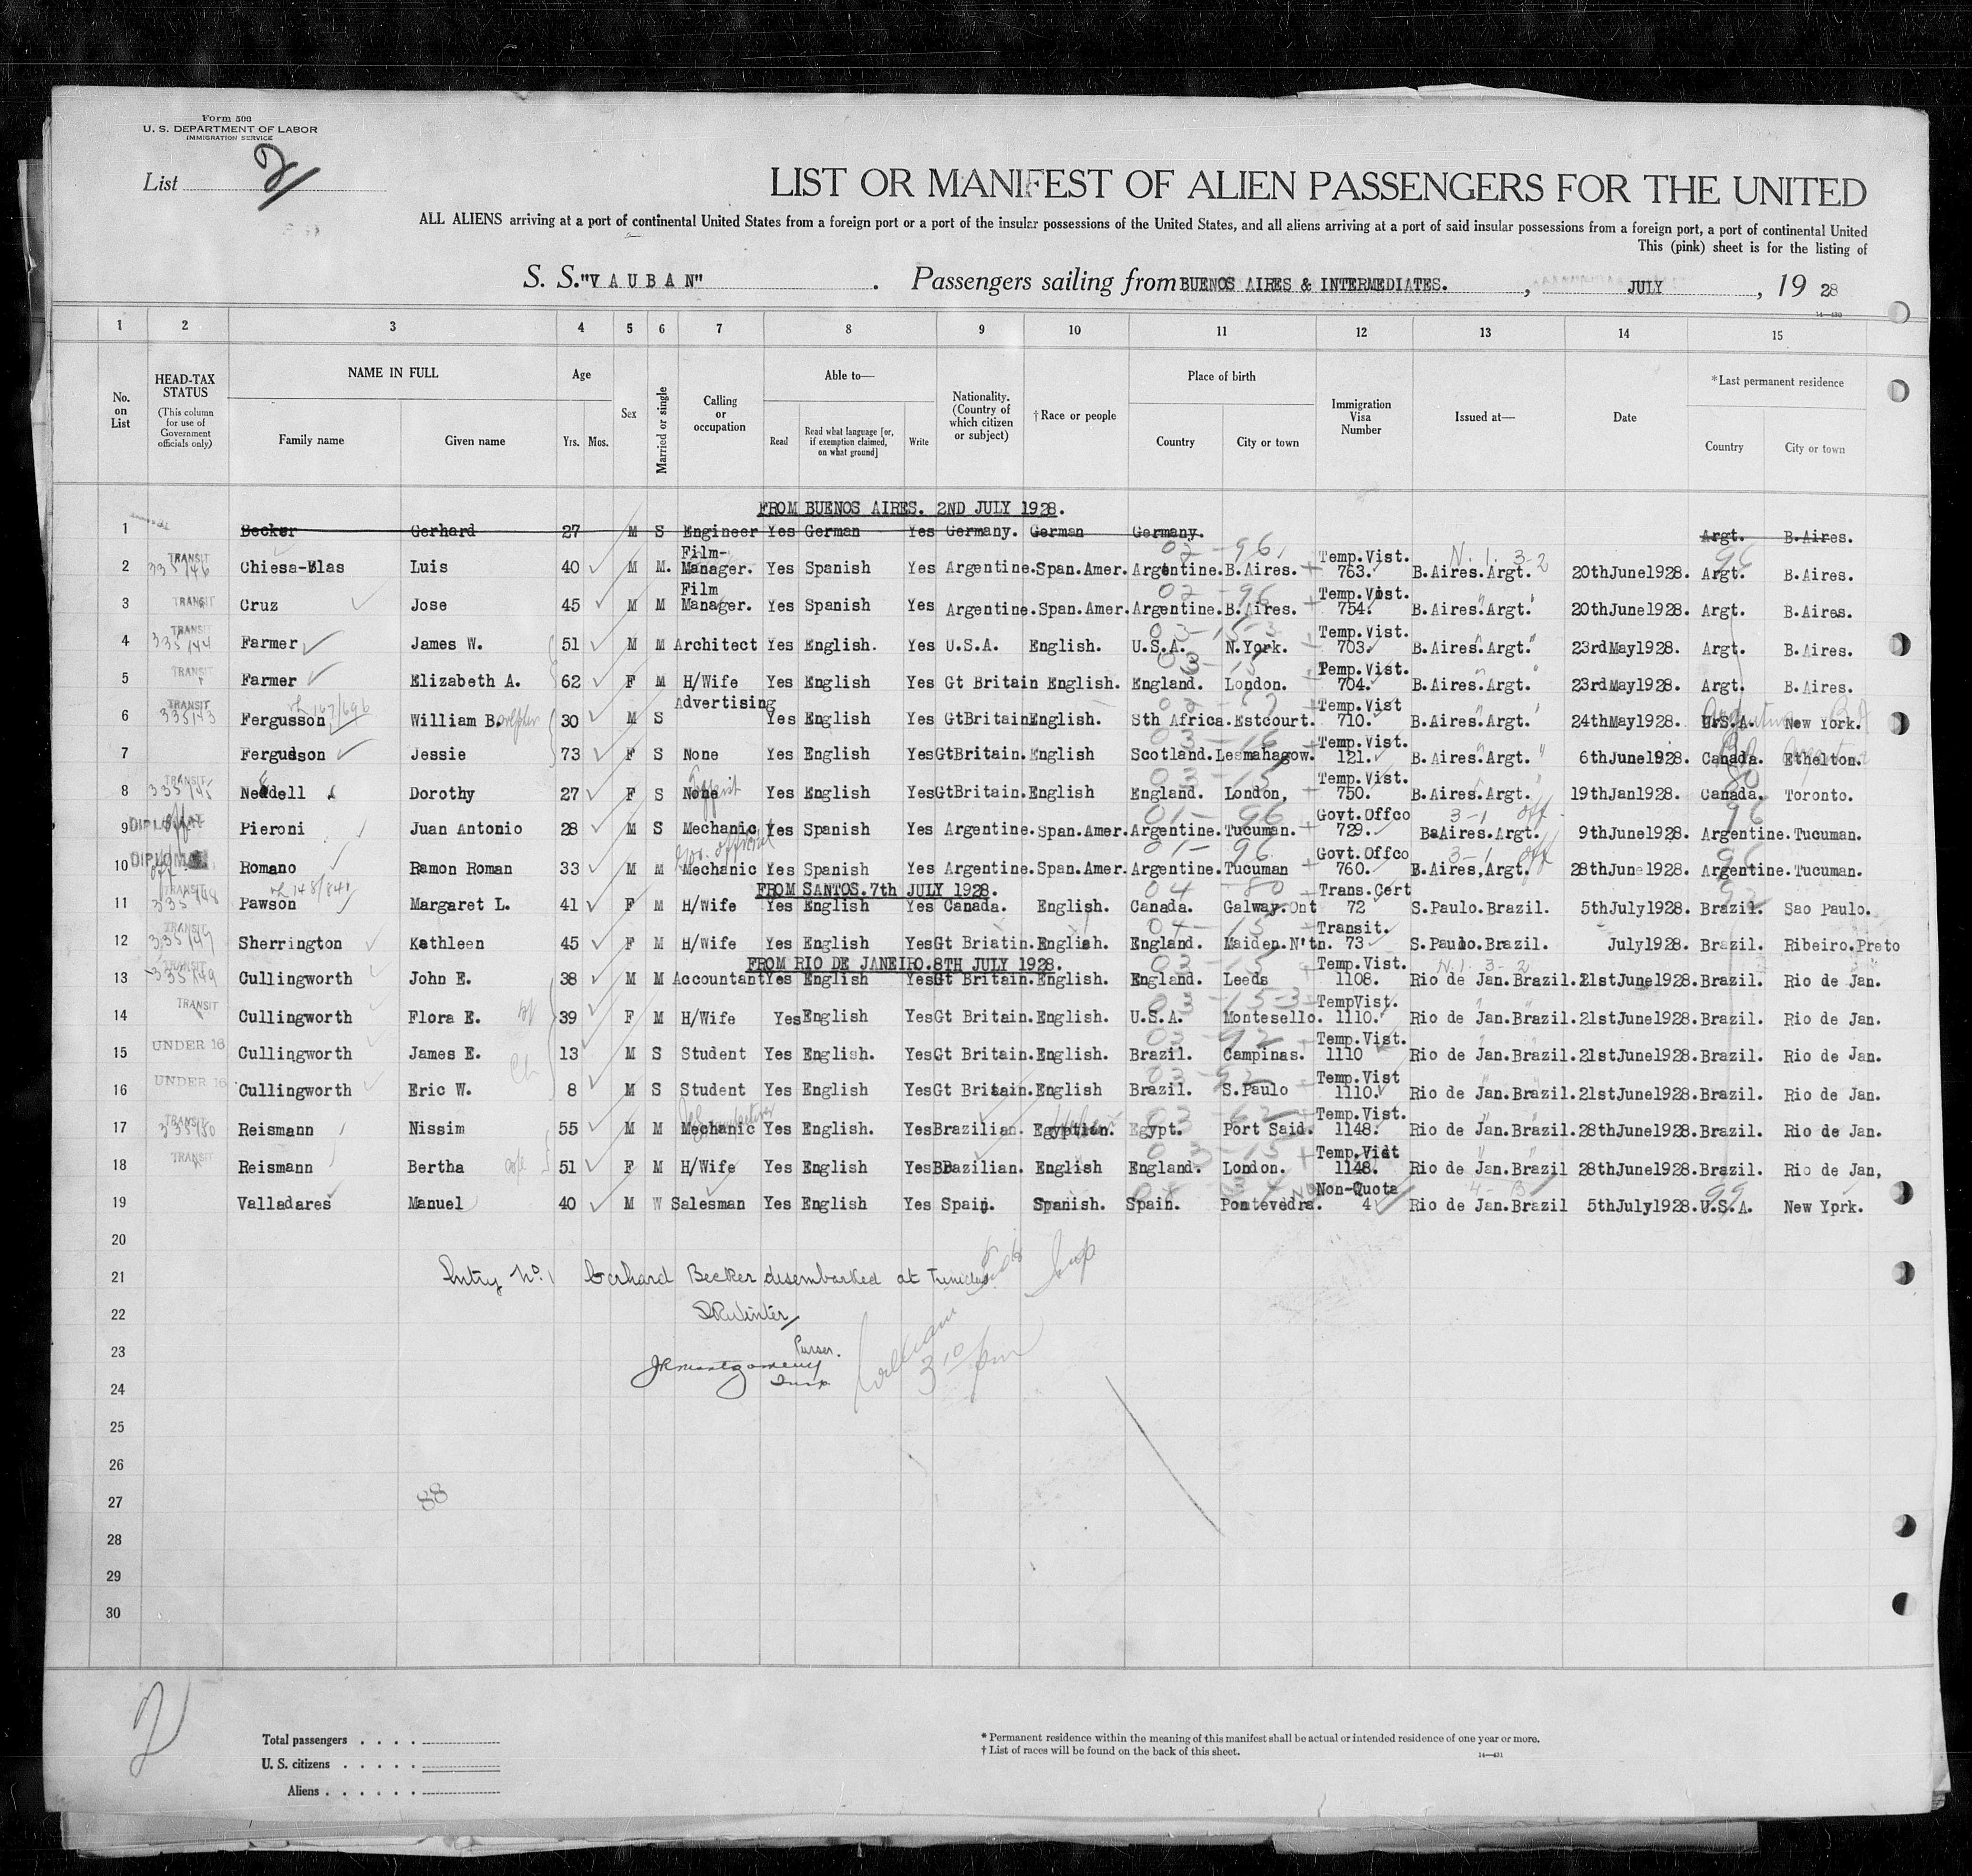 Form 500
U. S. DEPARTMENT OF LABOR
IMMIGRATION SERVICE
List 2
LIST OR MANIFEST OF ALIEN PASSENGERS FOR THE UNITED
ALL ALIENS arriving at a port of continental United States from a foreign port or a port of the insular possessions of the United States, and all aliens arriving at a port of said insular possessions from a foreign port, a port of continental United
This (pink) sheet is for the listing of
S. S. "VAUBAN" . Passengers sailing from BUENOS AIRES & INTERMEDIATES. , JULY , 19 28
14—430
1 2 3 4 5 6 7 8 9 10 11 12 13 14 15
No. on List
HEAD-TAX STATUS (This column for use of Government officials only)
NAME IN FULL Family name Given name
Age Yrs. Mos.
Sex
Married or single
Calling or occupation
Able to— Read Read what language [or, if exemption claimed, on what ground] Write
Nationality. (Country of which citizen or subject)
†Race or people
Place of birth Country City or town
Immigration Visa Number
Issued at—
Date
*Last permanent residence Country City or town
FROM BUENOS AIRES. 2ND JULY 1928.
1 Becker Gerhard 27 M S Engineer Yes German Yes Germany. German Germany. Argt. B.Aires.
2 TRANSIT 335146 Chiesa-Blas Luis 40 M M. Film-Manager. Yes Spanish Yes Argentine. Span.Amer. Argentine. B.Aires. Temp.Vist. 763. B.Aires.Argt. 20thJune1928. Argt. B.Aires.
3 TRANSIT Cruz Jose 45 M M Film Manager. Yes Spanish Yes Argentine. Span.Amer. Argentine. B.Aires. Temp.Vist. 754. B.Aires.Argt. 20thJune1928. Argt. B.Aires.
4 TRANSIT 335144 Farmer James W. 51 M M Architect Yes English. Yes U.S.A. English. U.S.A. N.York. Temp.Vist. 703. B.Aires.Argt. 23rdMay1928. Argt. B.Aires.
5 TRANSIT Farmer Elizabeth A. 62 F M H/Wife Yes English Yes Gt Britain English. England. London. Temp.Vist. 704. B.Aires.Argt. 23rdMay1928. Argt. B.Aires.
6 TRANSIT 335143 Fergusson William B. 30 M S Advertising Yes English Yes GtBritain English. Sth Africa. Estcourt. Temp.Vist 710. B.Aires.Argt. 24thMay1928. U.S.A. New York.
7 Fergusson Jessie 73 F S None Yes English Yes GtBritain. English Scotland. Lesmahagow. Temp.Vist. 121. B.Aires.Argt. 6thJune1928. Canada. Ethelton.
8 TRANSIT 335145 Neddell Dorothy 27 F S None Yes English Yes GtBritain. English England. London, Temp.Vist. 750. B.Aires.Argt. 19thJan1928. Canada. Toronto.
9 DIPLOMAT Pieroni Juan Antonio 28 M S Mechanic Yes Spanish Yes Argentine. Span.Amer. Argentine. Tucuman. Govt.Offco 729. BaAires.Argt. 9thJune1928. Argentine. Tucuman.
10 DIPLOMAT Romano Ramon Roman 33 M M Gov. Official Mechanic Yes Spanish Yes Argentine. Span.Amer. Argentine. Tucuman Govt.Offco 760. B.Aires,Argt. 28thJune1928. Argentine. Tucuman.
FROM SANTOS.7th JULY 1928.
11 TRANSIT 335148 Pawson Margaret L. 41 F M H/Wife Yes English Yes Canada. English. Canada. Galway.Ont Trans.Cert 72 S.Paulo.Brazil. 5thJuly1928. Brazil. Sao Paulo.
12 TRANSIT 335147 Sherrington Kathleen 45 F M H/Wife Yes English Yes Gt Briatin. English. England. Maiden.N'tn. Transit. 73 S.Paulo.Brazil. July1928. Brazil. Ribeiro.Preto
FROM RIO DE JANEIRO.8TH JULY 1928.
13 TRANSIT 335149 Cullingworth John E. 38 M M Accountant Yes English Yes Gt Britain. English. England. Leeds Temp.Vist. 1108. Rio de Jan.Brazil. 21stJune1928. Brazil. Rio de Jan.
14 TRANSIT Cullingworth Flora E. 39 F M H/Wife Yes English Yes Gt Britain. English. U.S.A. Montesello. TempVist. 1110. Rio de Jan.Brazil. 21stJune1928. Brazil. Rio de Jan.
15 UNDER 16 Cullingworth James E. 13 M S Student Yes English. Yes Gt Britain. English. Brazil. Campinas. Temp.Vist. 1110 Rio de Jan.Brazil. 21stJune1928. Brazil. Rio de Jan.
16 UNDER 16 Cullingworth Eric W. 8 M S Student Yes English Yes Gt Britain. English Brazil. S.Paulo Temp.Vist 1110. Rio de Jan.Brazil. 21stJune1928. Brazil. Rio de Jan.
17 TRANSIT 335150 Reismann Nissim 55 M M Mechanic Yes English. Yes Brazilian. Egyptian. Egypt. Port Said. Temp.Vist. 1148. Rio de Jan.Brazil. 28thJune1928. Brazil. Rio de Jan.
18 TRANSIT Reismann Bertha 51 F M H/Wife Yes English Yes Brazilian. English England. London. Temp.Vist 1148. Rio de Jan.Brazil 28thJune1928. Brazil. Rio de Jan,
19 Valladares Manuel 40 M W Salesman Yes English Yes Spain. Spanish. Spain. Pontevedra. Non-Quota 4 Rio de Jan.Brazil 5thJuly1928. U.S.A. New York.
20
21 Entry No. 1 Gerhard Becker disembarked at Trinidad
22 Winter
23 Purser.
JR Montgomery
24 Insp
3 10 pm
25
26
27 88
28
29
30
2
Total passengers . . . .
U. S. citizens . . . . .
Aliens . . . . . .
* Permanent residence within the meaning of this manifest shall be actual or intended residence of one year or more.
† List of races will be found on the back of this sheet.
14—431